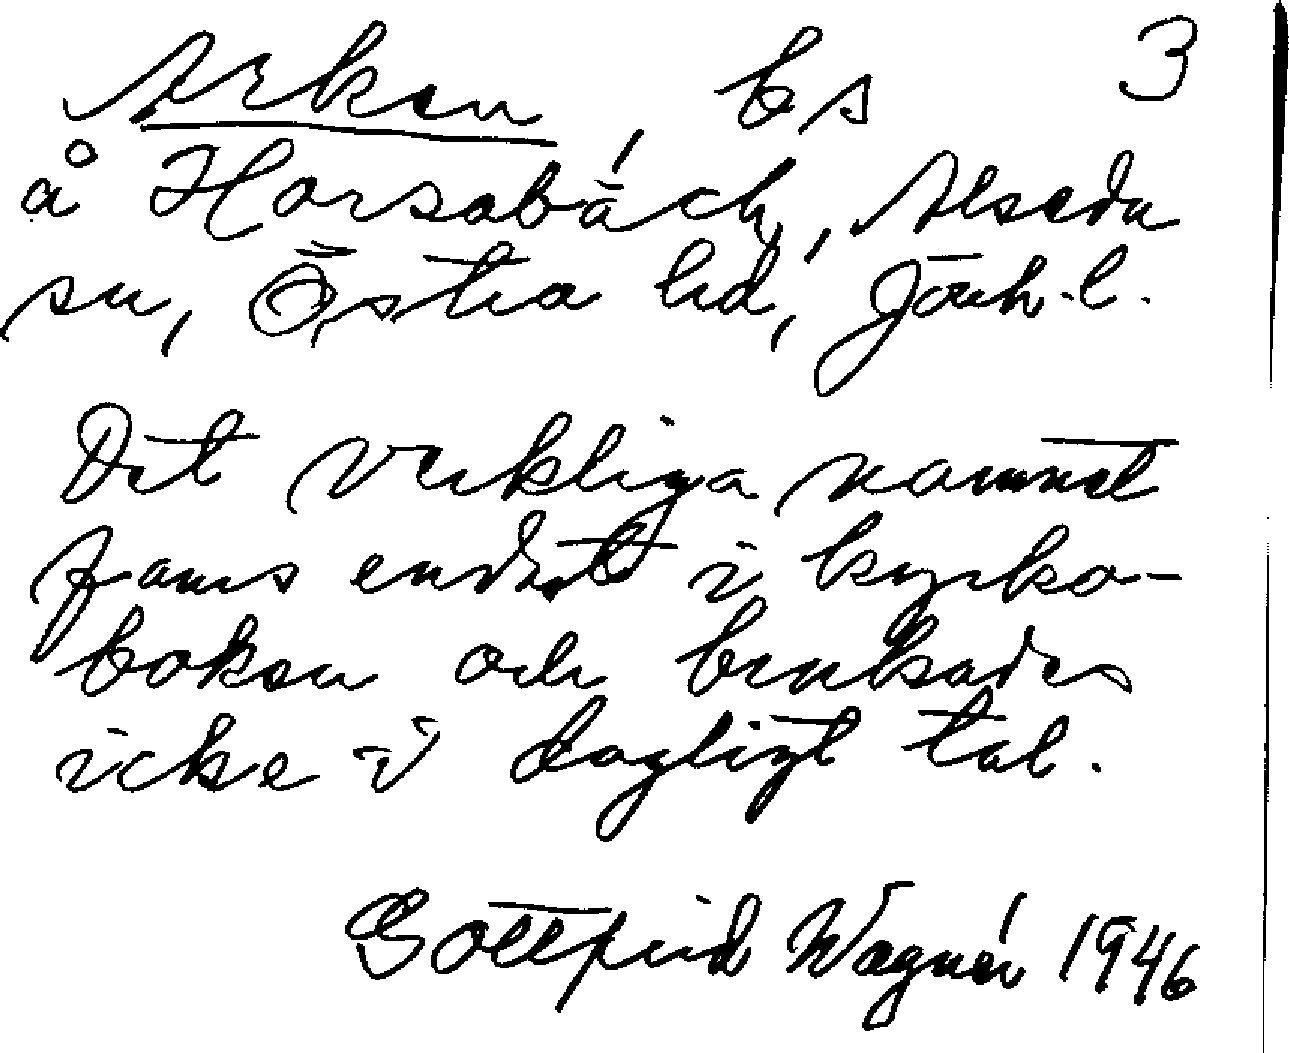 Arken, bs 3
å Horsabäck, Alseda
sn, Östra hd, Jönk. l.
Det verkliga namnet
fanns endast i kyrko-
boken och brukades
icke i dagligt tal.
Gottfrid Wagnér 1946